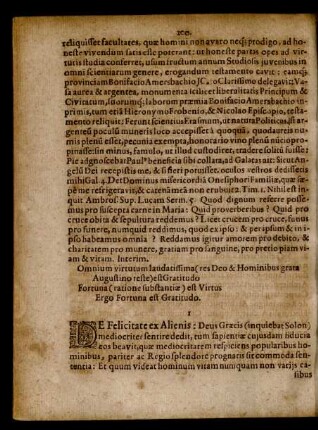 100.
reliquisset facultates, quæ homini non avaro neq; prodigo, ad ho-
neste vivendum satis esse poterant: ut honestè partas opes ad vir-
tutis studia conferret, usum fructum annuum Studiosis juvenibus in
omni scientiarum genere, erogandum testamento cavit: eamq;
provinciam Bonifacio Amerbachio JC. clarissimo delegavit: Va-
sa aurea & argentea, monumenta scilicet liberalitatis Principum &
Civitatum, suorumq; laborum præmia Bonifacio Amerbachio in
primis, tum etiā Hieronymo Frobenio, & Nicolao Episcopio, testa-
mento reliquit: Ferunt Scientiæ Erasmum, ut natura
argenteū poculū muneris loco accepisset à quoquā, quod aureis nu-
mis plenū esset, pecunia exempta, honorario vino plenū nunc pro-
pinasse: sin minus, famulo, ut illud custodiret, tradere solitū fuisse:
Pie adgnoscebat Paulꝰ beneficia sibi collata, ad Galatas ait: Sicut Ange-
lū Dei recepistis me, & si fieri potuisset, oculos vestros dedissetis
mihi Gal. 4. Det Dominus misericordiā Onesiphori Familiæ, quia sæ-
pè me refrigeravit, & catenā meā non erubuit 2. Tim. 1. Nihil est in-
quit Ambros. Sup. Lucam Serm. 5. Quod dignum referre posse-
mus pro suscepta carne in Maria: Quid pro verberibus? Quid pro
cruce obita & sepultura reddemus? Licet crucem pro cruce, funus
pro funere, nunquid reddimus, quod ex ipso: & per ipsum & in
ipso habeamus omnia? Reddamus igitur amorem pro debito, &
charitatem pro munere, gratiam pro sanguine, pro pretio piam vi-
am & vitam. Interim.
Omnium virtutum laudatissima (res Deo & Hominibus grata
Augustino teste) est Gratitudo
Fortuna (ratione substantiæ) est Virtus
Ergo Fortuna est Gratitudo.
I
DE Felicitate ex Alienis: Deus Græcis (inquiebat Solon)
mediocriter sentire dedit, tum sapientiæ cujusdam fiducia
eos beavit, quæ mediocritatem respiciens popularibus ho-
minibus, pariter ac Regio splendore prognatis sit commoda sen-
tentia: Et quum videat hominum vitam nunquam non varijs ca-
sibus